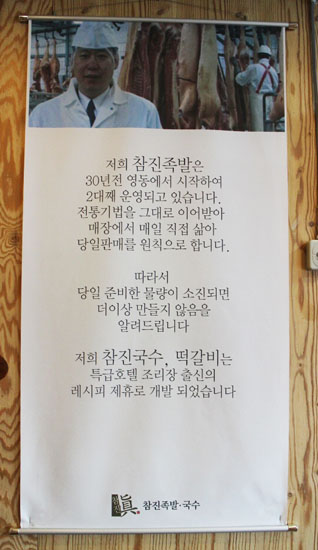 저희 참진족발은
30년전 영동에서 시작하여
2대째 운영되고 있습니다.
전통기법을 그대로 이어받아
매장에서 매일 직접 삶아
당일판매를 원칙으로 합니다.
따라서
당일 준비한 물량이 소진되면
더이상 만들지 않음을
알려드립니다
저희 참진국수, 떡갈비는
특급호텔 조리장 출신의
레시피 제휴로 개발 되었습니다
眞 참진족발·국수